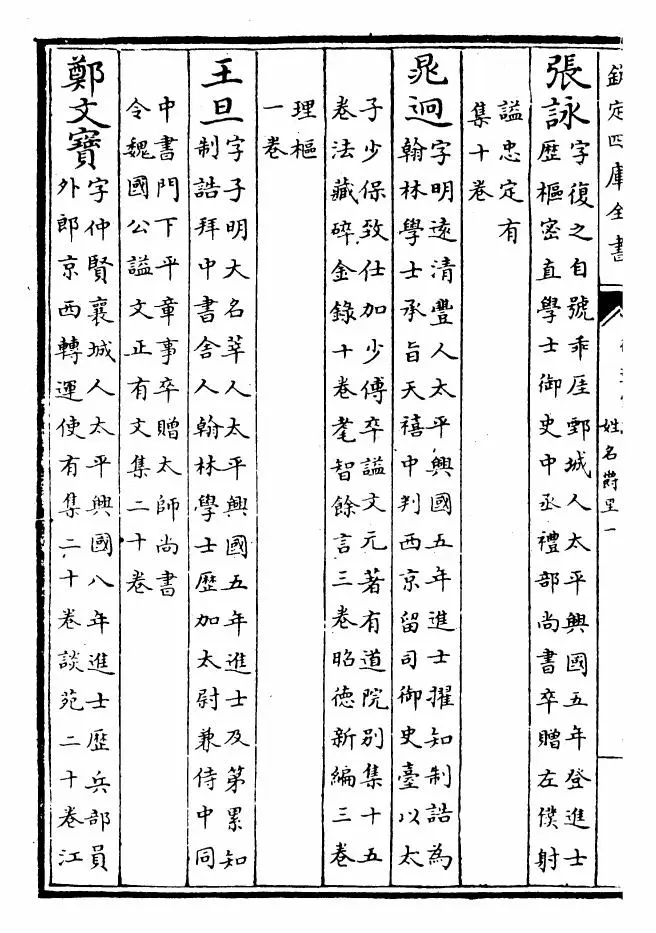 欽定四庫全書
姓名爵里一
張詠字復之自號乖厓鄄城人太平興國五年登進士
歷樞密直學士御史中丞禮部尚書卒贈左僕射
諡忠定有
集十卷
晁迥字明遠清豐人太平興國五年進士擢知制誥為
翰林學士承旨天禧中判西京留司御史臺以太
子少保致仕加少傅卒諡文元著有道院別集十五
卷法藏碎金錄十卷耄智餘言三卷昭德新編三卷
理樞
一卷
王旦字子明大名莘人太平興國五年進士及第累知
制誥拜中書舍人翰林學士歷加太尉兼侍中同
中書門下平章事卒贈太師尚書
令魏國公諡文正有文集二十卷
鄭文寶字仲賢襄城人太平興國八年進士歷兵部員
外郎京西轉運使有集二十卷談苑二十卷江